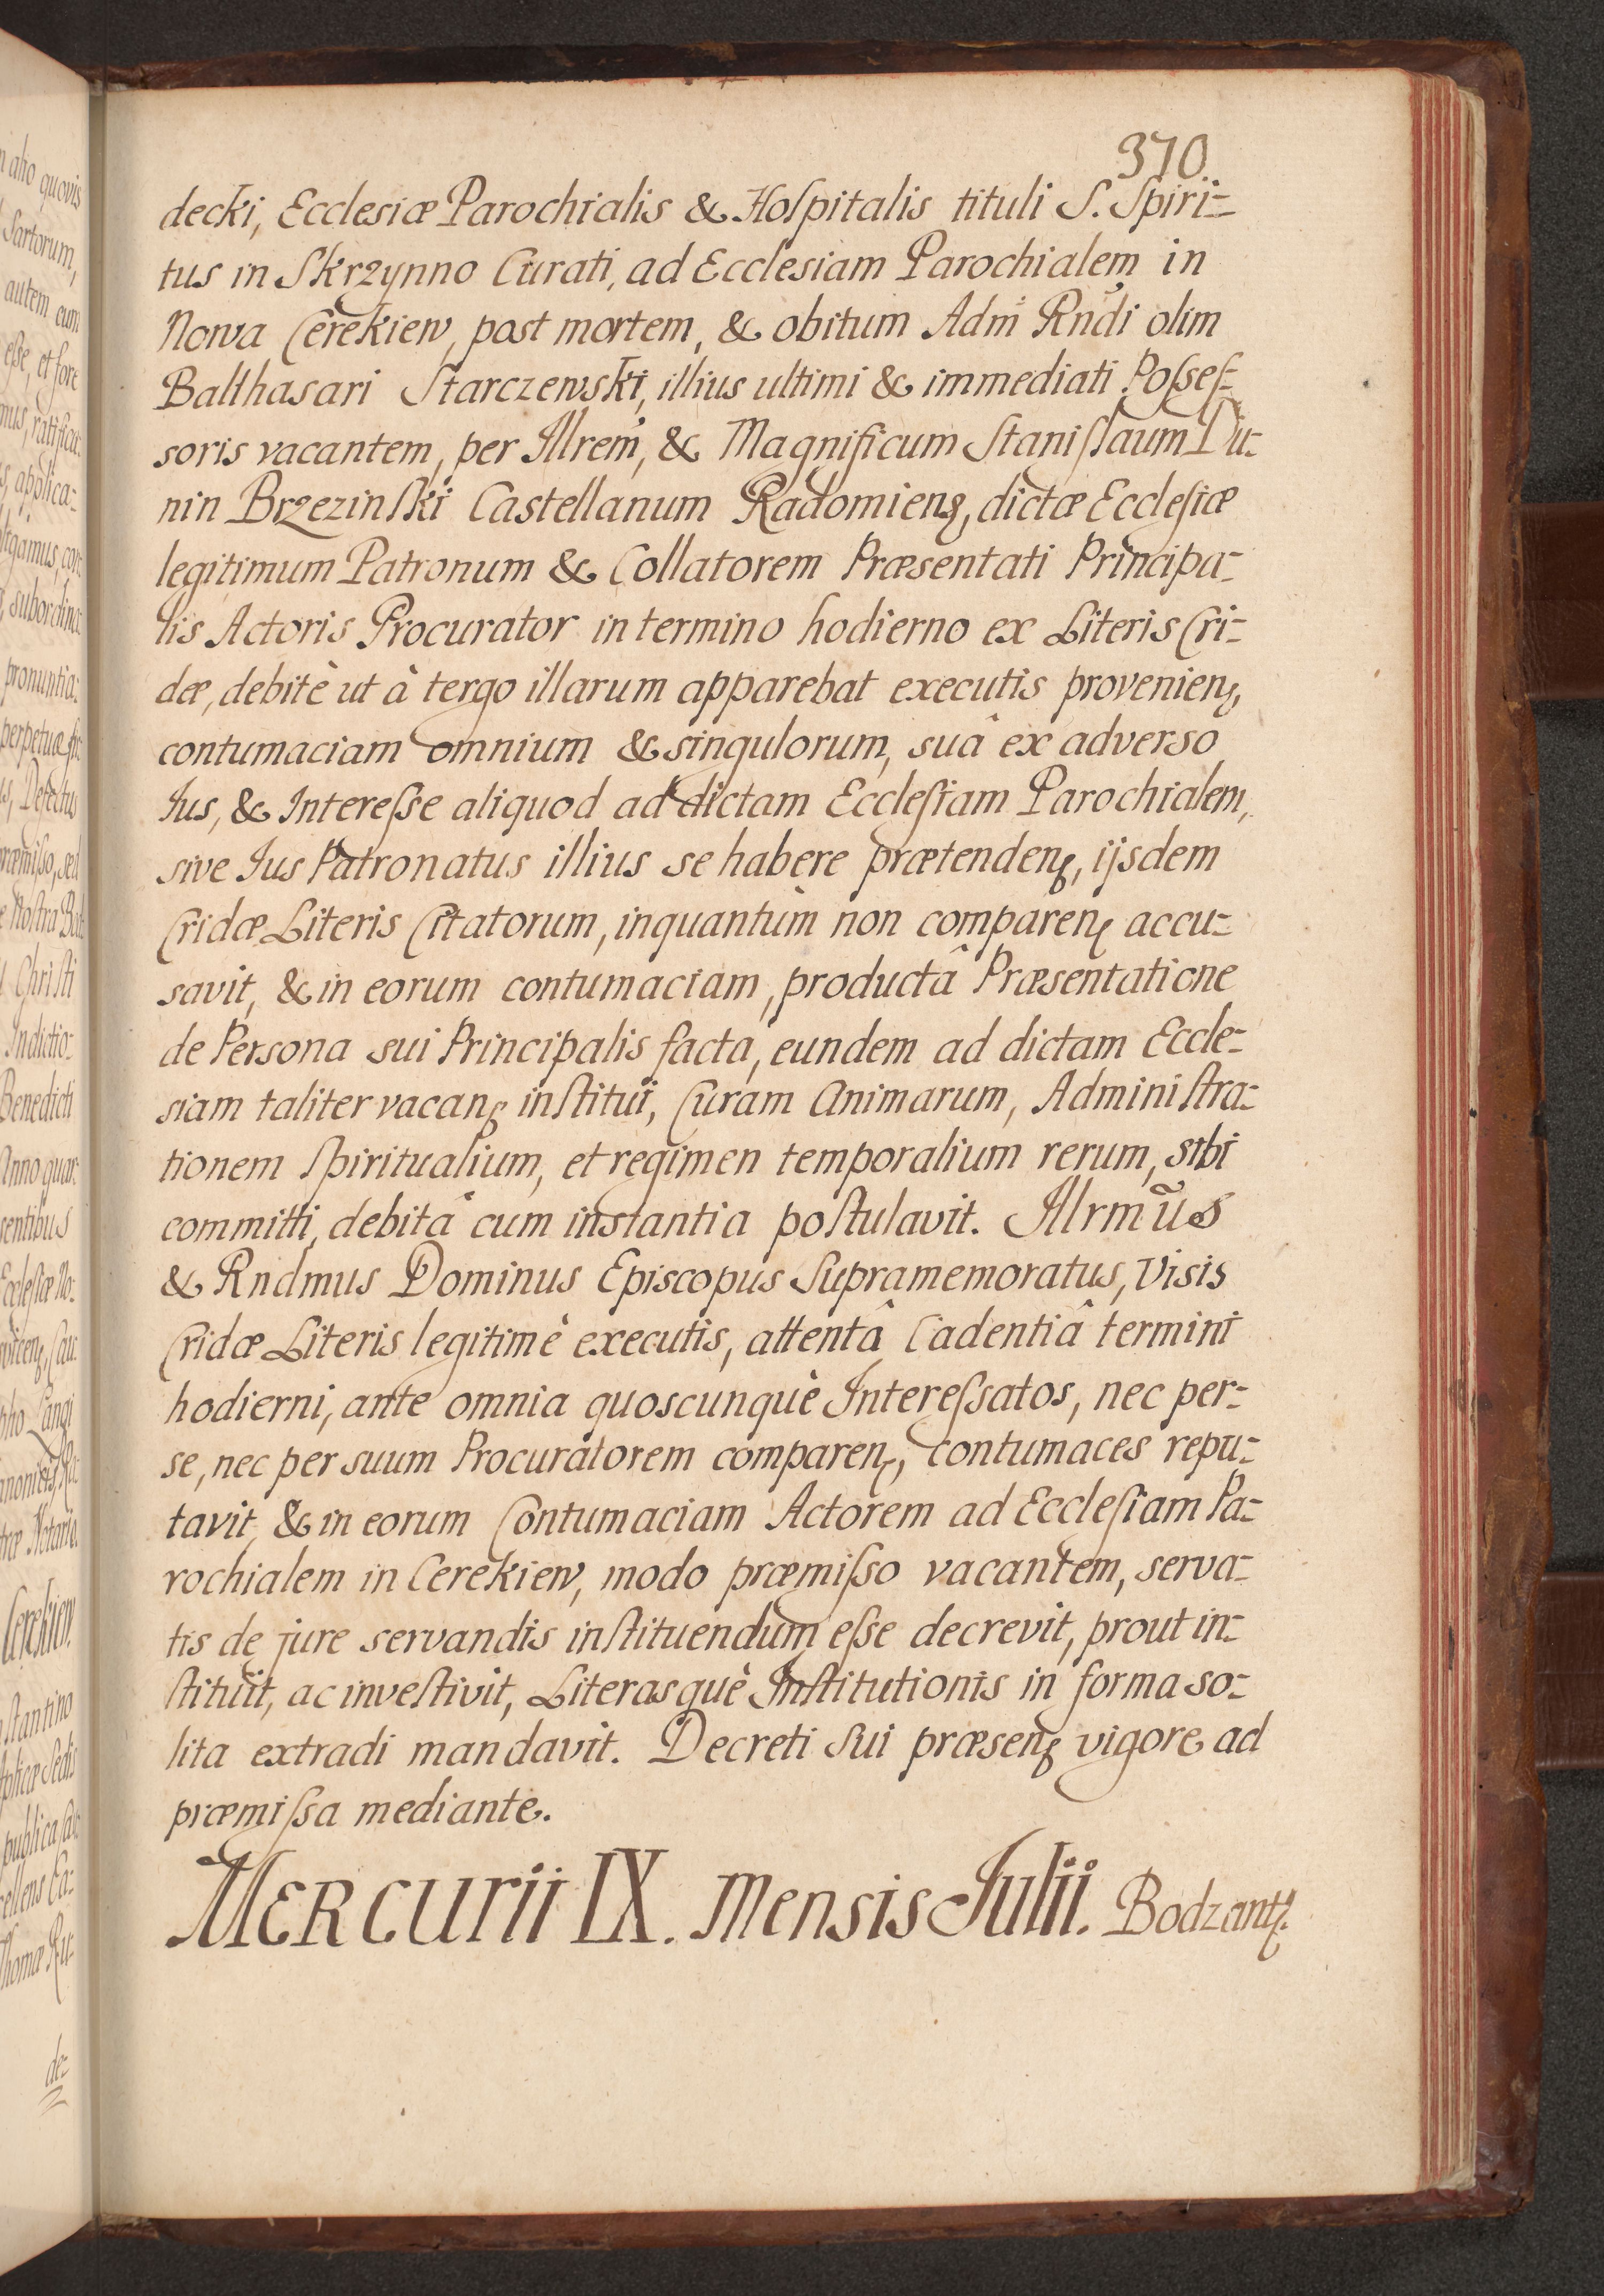 370
decki, Ecclesiæ Parochialis & Hoſpitalis tituli S. Spiri=
tus in Skrzynno Curati, ad Ecclesiam Parochialem in
Nowa Cerekiew, post mortem, & obitum Adm̃ Rndi olim
Balthasari Starczewski, illius ultimi & immediati Poſseſ=
soris vacantem, per Illrem, & Magnificum Staniſlaum Du=
nin Brzezinſki Castellanum Radomienꝫ, dictæ Eccleſiæ
legitimum Patronum & Collatorem Præsentati Principa=
lis Actoris Procurator in termino hodierno ex Literis Cri=
dæ, debitè ut à tergo illarum apparebat executis provenienꝫ,
contumaciam omnium & singulorum, suâ ex adverso
Jus, & Intereſse aliquod ad dictam Eccleſiam Parochialem,
sive Jus Patronatus illius se habere prætendenꝫ, ijsdem
Cridæ Literis Citatorum, inquantùm non comparenꝫ accu=
savit, & in eorum contumaciam, productâ Præsentatione
de Persona sui Principalis facta, eundem ad dictam Eccle=
siam taliter vacanꝫ inſtitui, Curam Animarum, Adminiſtra=
tionem ſpiritualium, et regimen temporalium rerum, sibi
committi, debitâ cum instantia poſtulavit. Illrmũs
& Rndmus Dominus Episcopus Supramemoratus, Visis
Cridæ Literis legitimè executis, attentâ Cadentiâ termini
hodierni, ante omnia quoscunquè Intereſsatos, nec per=
se, nec per suum Procuratorem comparenꝫ, contumaces repu=
tavit, & in eorum Contumaciam Actorem ad Eccleſiam Pa=
rochialem in Cerekiew, modo præmiſso vacantem, serva=
tis de jure servandis inſtituendum eſse decrevit, prout in=
ſtituit, ac inveſtivit, Literasquè Inſtitutionis in forma so=
lita extradi mandavit. Decreti Sui præsenꝫ vigore ad
præmiſsa mediante.
MERCURii IX. Mensis Julii. Bodzantꝫ.
n alio quovis
Sartorum,
autem eum
eſse, et fore
mus, ratifica=
s, applica=
subordina=
pronuntia=
perpetuæ
Defectus
præmiſso, sed
Christi
Indictio=
Benedicti
Anno quar=
sentibus
Eccleſiæ No=
Langi
Cerekiew.
ſtantino
Sedis
publica
Thomæ
de=